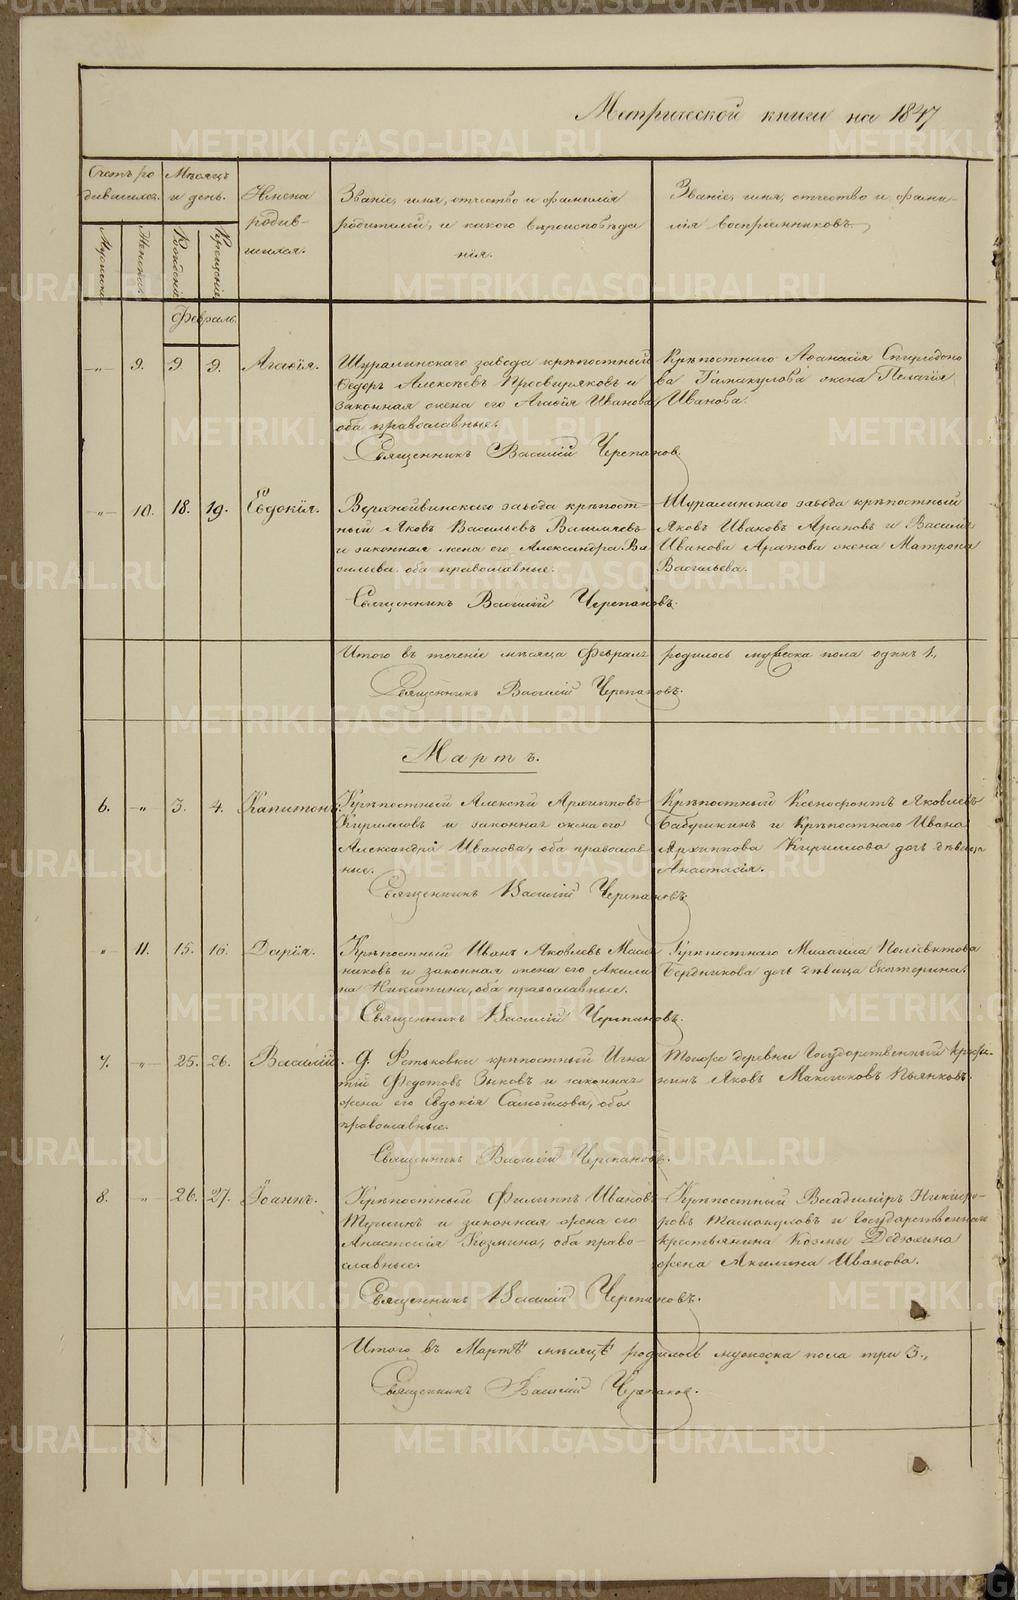 Метрической книги на 1847
Счетъ ро-
дившихся.
Мѣсяцъ
и день.
Имена
родив-
шихся.
Званіе, имя, отчество и фамилія
родителей, и какого вѣроисповѣда
нія.
Званіе, имя, отчество и фами-
лія воспріемниковъ.
Мужеска.
Женска.
Рожденія.
Крещенія.
Февраль.
—„— 9. 9 9. Агафія.
Шуралинскаго завода крѣпостный
Ѳедоръ Алексѣевъ Просвиряковъ и
законная жена его Агафія Иванова
оба православные.
Священникъ Василій Черепанов.
Крѣпостнаго Аѳанасія Спиридоно
ва жена Пелагія
Иванова.
—„— 10. 18. 19. Евдокія.
Верхнейвинскаго завода крѣпост-
ный Яковъ Васильевъ
и законная жена его Александра Ва
сильева оба православные.
Священникъ Василій Черепановъ.
Шуралинскаго завода крѣпостный
Яковъ Ивановъ Араповъ и Василія
Иванова Арапова жена Матрона
Васильева.
Итого въ теченіе мѣсяца Февраля родилось мужеска пола одинъ 1.,
Священникъ Василій Черепановъ.
Мартъ.
6. —„— 3. 4. Капитонъ.
Крѣпостный Алексѣй Архипповъ
Кирилловъ и законная жена его
Александра Иванова, оба православ-
ные.
Священникъ Василій Черепановъ
Крѣпостный Ксенофонтъ Яковлевъ
Бабушкинъ и Крѣпостнаго Ивана
Архиппова Кириллова дочь дѣвица
Анастасія.
„— 11. 15. 16. Дарія.
Крѣпостный Иванъ Яковлевъ Масля
никовъ и законная жена его Акили
на Никитина, оба православные.
Священникъ Василій Черепановъ.
Крѣпостнаго Михаила Полиевктова
Бердникова дочь дѣвица Екатерина.
7. „— 25. 26. Василій.
Д. крѣпостный Игна
тій Федотовъ Зыковъ и законная
жена его Евдокія Самойлова, оба
православные.
Священникъ Василій Черепановъ.
Тоиже деревни Государственный кресть-
нинъ Яковъ Максимовъ Пьянковъ.
8. „— 26. 27. Іоаннъ.
Крѣпостный Филиппъ Ивановъ
и законная жена его
Анастасія Козмина, оба право-
славные.
Священникъ Василій Черепановъ.
Крѣпостный Владиміръ Никифо-
ровъ и Государственнаго
крестьянина Козмы Дедюхина
жена Акилина Иванова.
Итого въ Мартѣ мѣсяцѣ родилось мужеска пола три 3.,
Священникъ Василій Черепанов.
METRIKI.GASO-URAL.RU